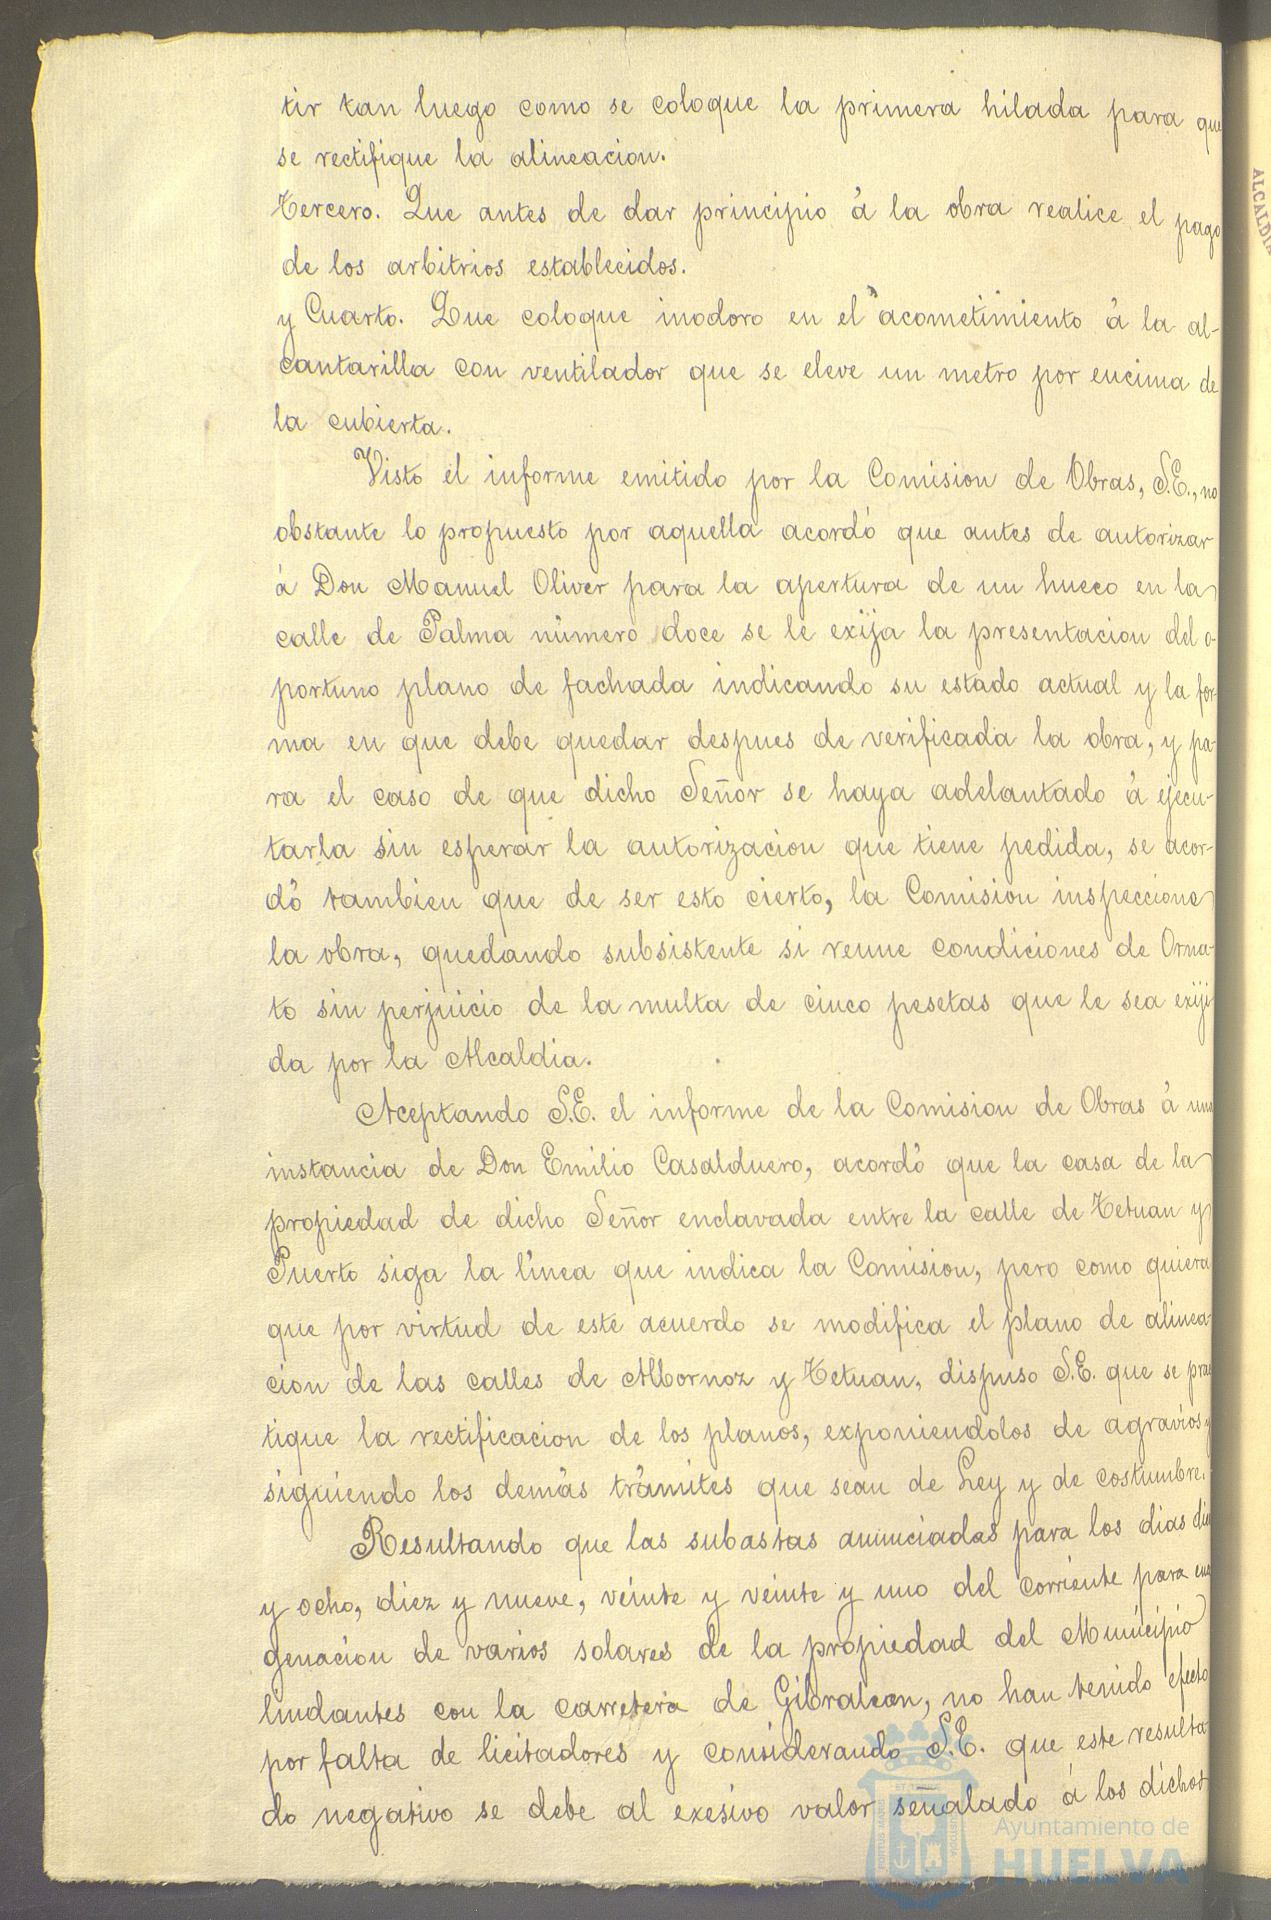 tir tan luego como se coloque la primera hilada para que
se rectifique la alineacion.
Tercero. Que antes de dar principio á la obra realice el pago
de los arbitrios establecidos.
y Cuarto. Que coloque inodoro en el acometimiento á la al-
cantarilla con ventilador que se eleve un metro por encima de
la cubierta.
Visto el informe emitido por la Comision de Obras, S.E., no
obstante lo propuesto por aquella acordó que antes de autorizar
á Don Manuel Oliver para la apertura de un hueco en la
calle de Palma número doce se le exija la presentacion del o-
portuno plano de fachada indicando su estado actual y la for-
ma en que debe quedar despues de verificada la obra, y pa-
ra el caso de que dicho Señor se haya adelantado á ejecu-
tarla sin esperar la autorizacion que tiene pedida, se acor-
dó tambien que de ser esto cierto, la Comision inspeccione
la obra, quedando subsistente si reune condiciones de Orna-
to sin perjuicio de la multa de cinco pesetas que le sea exiji
da por la Alcaldia.
Aceptando S.E. el informe de la Comision de Obras á una
instancia de Don Emilio Casalduero, acordó que la casa de la
propiedad de dicho Señor enclavada entre la calle de Tetuan y
Puerto siga la línea que indica la Comision, pero como quiera
que por virtud de este acuerdo se modifica el plano de alinea-
cion de las calles de Albornoz y Tetuan, dispuso S.E. que se prac
tique la rectificacion de los planos, exponiendolos de agravios y
siguiendo los demás trámites que sean de Ley y de costumbre.
Resultando que las subastas anunciadas para los dias diez
y ocho, diez y nueve, veinte y veinte y uno del corriente para ena
genacion de varios solares de la propiedad del Municipio
lindantes con la carretera de Gibraleon, no han tenido efecto
por falta de licitadores y considerando S.E. que este resulta-
do negativo se debe al exesivo valor señalado á los dichos
ALCALDIA
Ayuntamiento de
HUELVA